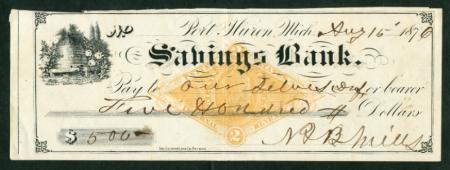 No Port Huron, Mich. Aug 15 1876
Savings Bank.
Pay to our selves or bearer
Five Hondred $ Dollars
$ 500
2